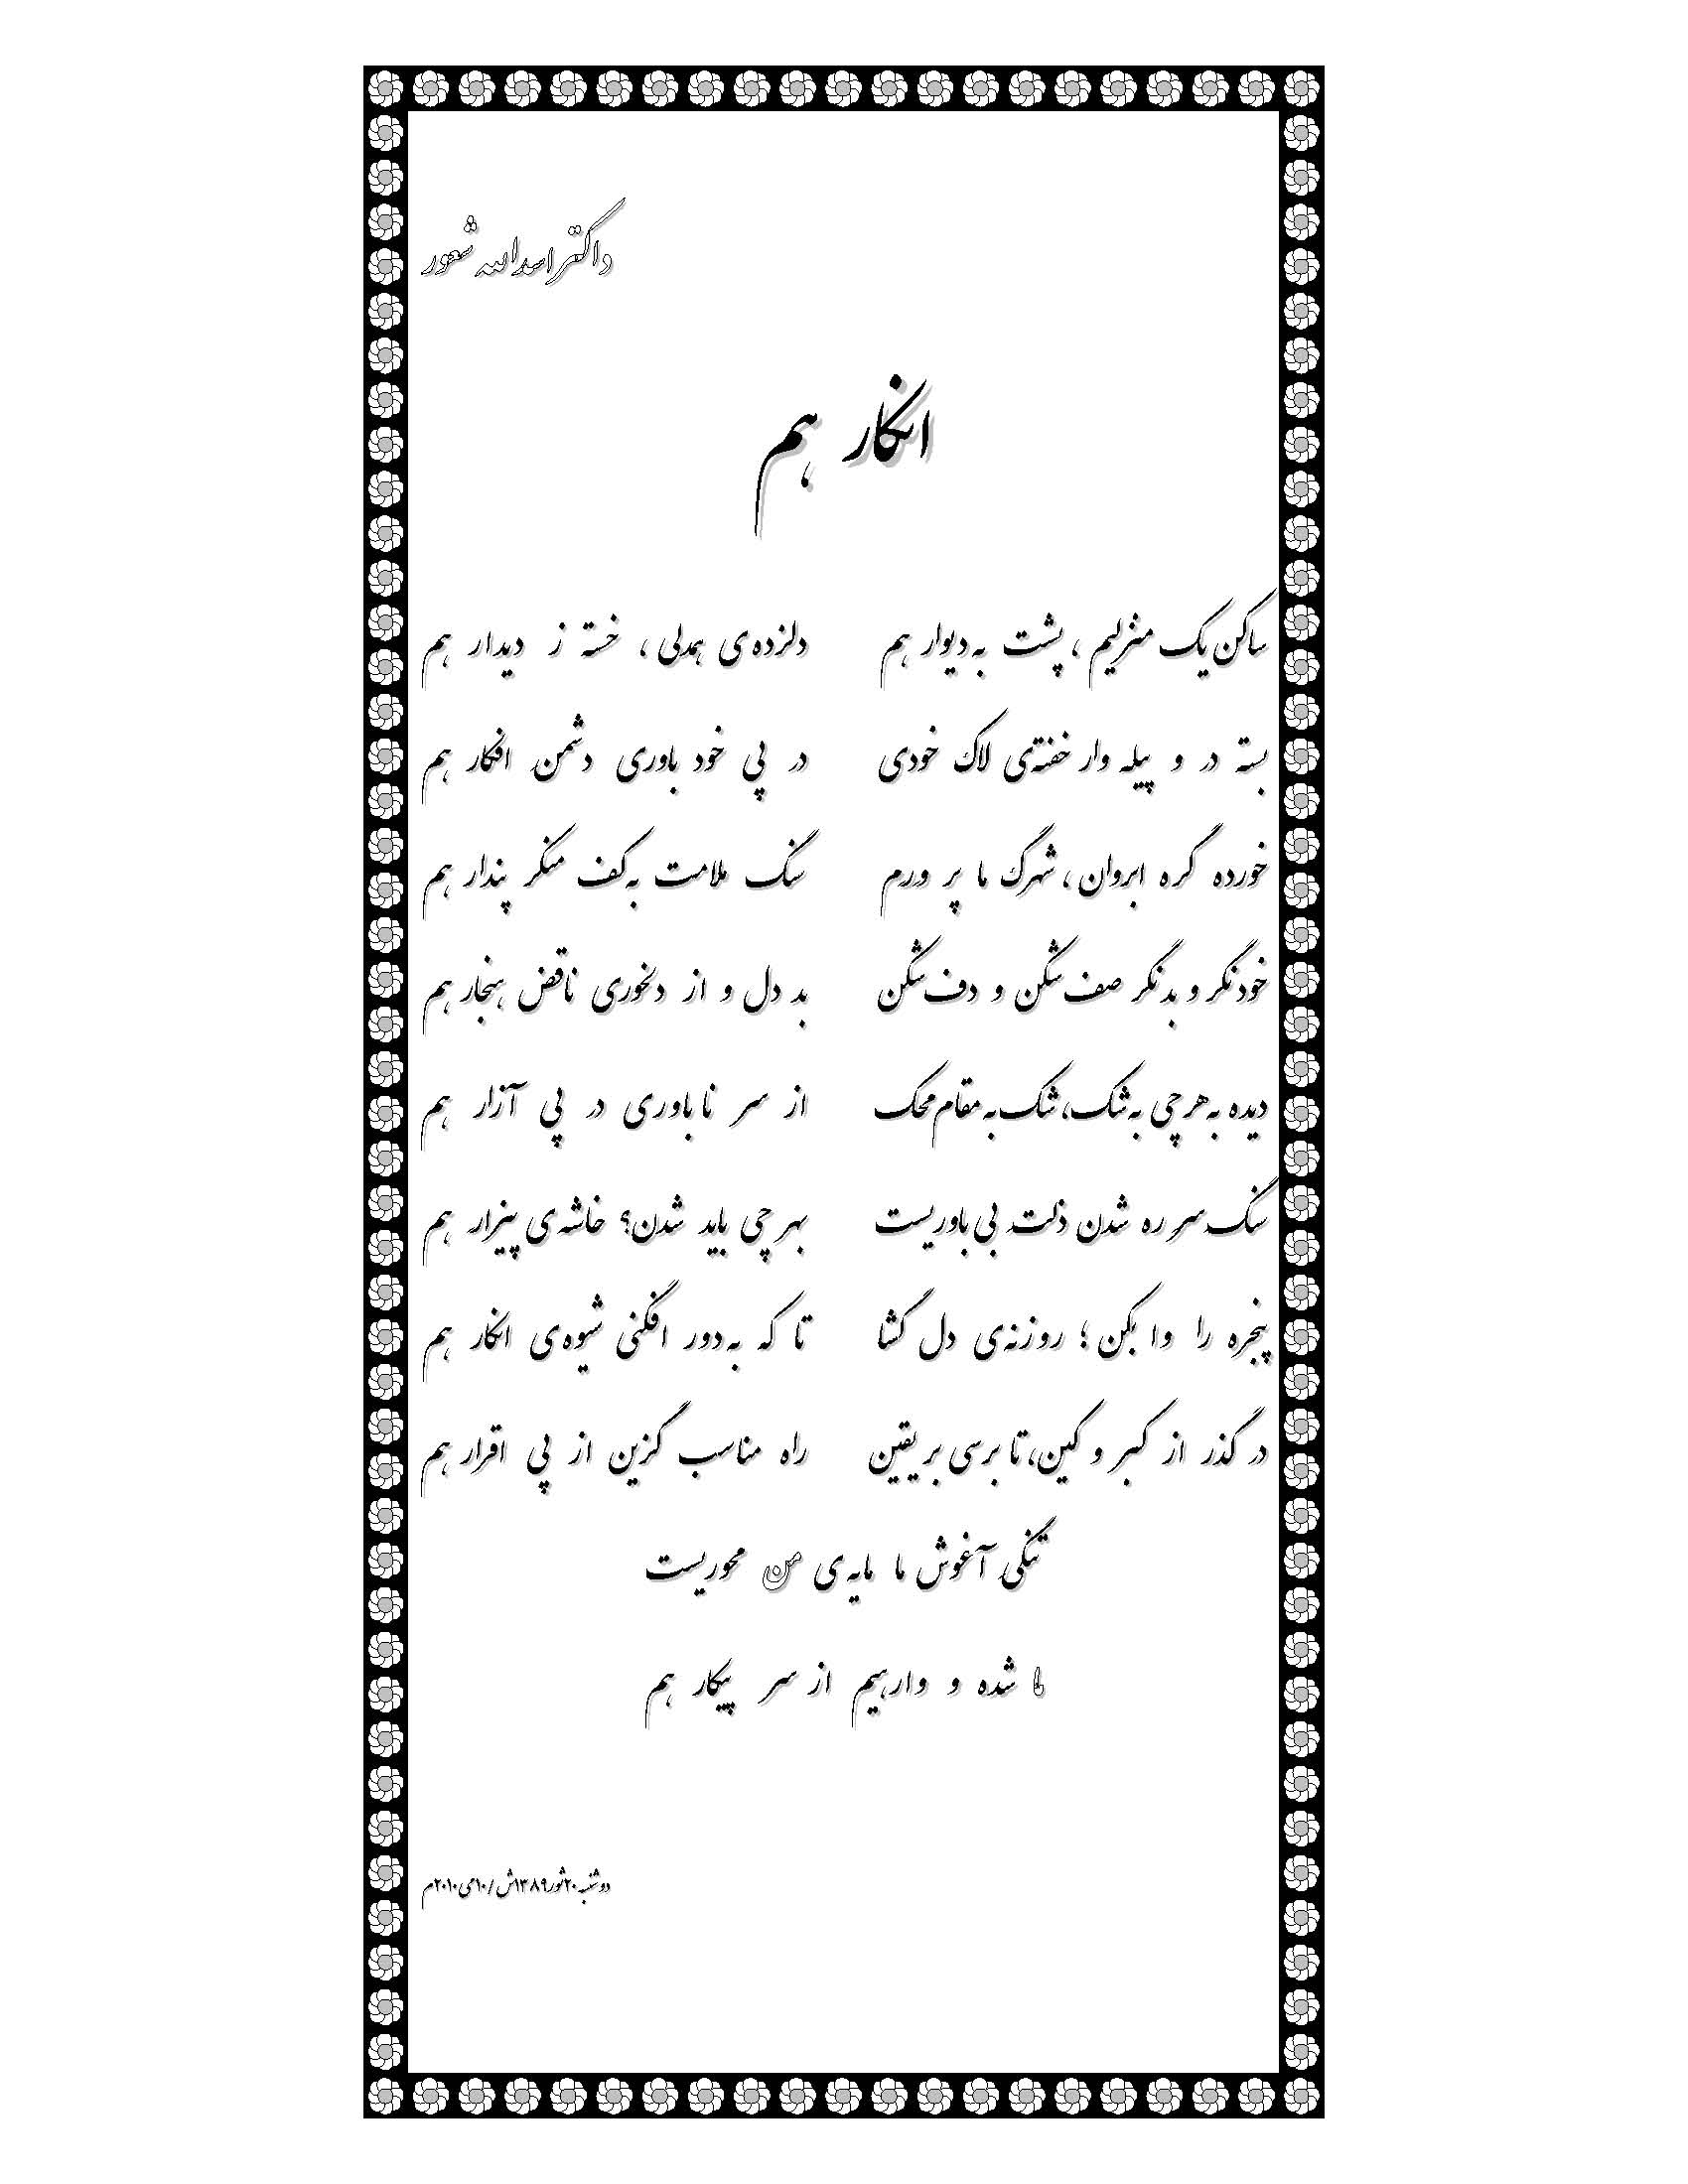 داکتر اسدالله شعور
انکار هم
ساکن یک منزلیم ، پشت به دیوار هم    دلزده‌ی همدلی ، خسته ز دیدار هم
بسته در و پیله وار خفته‌ی لاک خودی    در پی خود باوری دشمن افکار هم
خورده گره ابروان ، شهرگ ما پر ورم    سنگ ملامت به کف منکر پندار هم
خودنگر و بدنگر صف شکن و دف شکن    بد دل و از دلخوری ناقض هنجار هم
دیده به هر چی به شک، شک به مقام محک    از سر ناباوری در پی آزار هم
سنگ سر ره شدن ذلت بی باوریست    بهر چی باید شدن؟ خاشه‌ی پیزار هم
پنجره را وا بکن ؛ روزنه‌ی دل گشا    تا که به دور افکنی شیوه‌ی انکار هم
در گذر از کبر و کین، تا برسی بر یقین    راه مناسب گزین از پی اقرار هم
تنگی آغوش ما مایه‌ی من محوریست
ما شده و وارهیم از سر پیکار هم
دوشنبه ۲۰ ثور ۱۳۸۹ش / ۱۰ می ۲۰۱۰م